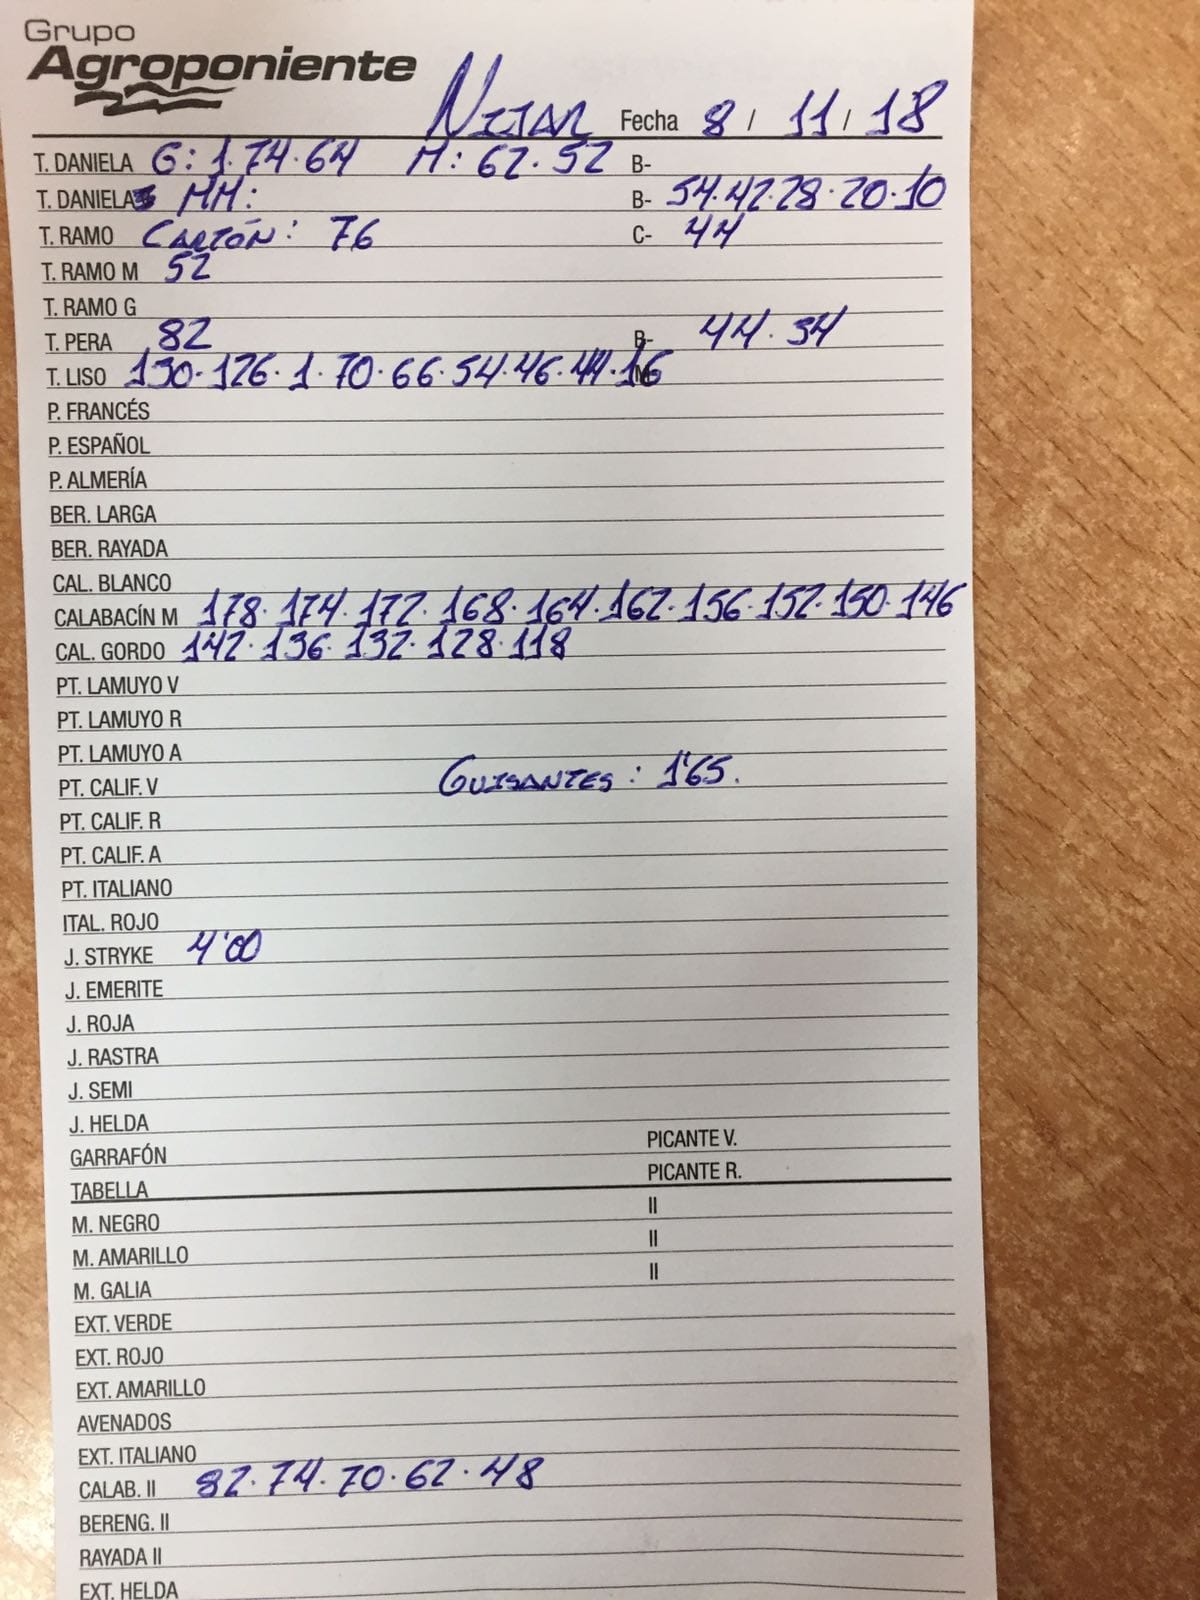 Grupo
Agroponiente
NIJAR Fecha 8 / 11 / 18
T. DANIELA G: 1.74.64 M: 62.52 B-
T. DANIELA MM: B- 54.42.28.20.10
T. RAMO CARTÓN: 76 C- 44
T. RAMO M 52
T. RAMO G
T. PERA 82 B- 44.34
T. LISO 130.126.1.70.66.54.46.44.16 M-
P. FRANCÉS
P. ESPAÑOL
P. ALMERÍA
BER. LARGA
BER. RAYADA
CAL. BLANCO
CALABACÍN M 178.174.172.168.164.162.156.152.150.146
CAL. GORDO 142.136.132.128.118
PT. LAMUYO V
PT. LAMUYO R
PT. LAMUYO A
PT. CALIF. V GUISANTES: 1'65.
PT. CALIF. R
PT. CALIF. A
PT. ITALIANO
ITAL. ROJO
J. STRYKE 4'00
J. EMERITE
J. ROJA
J. RASTRA
J. SEMI
J. HELDA
GARRAFÓN PICANTE V.
TABELLA PICANTE R.
M. NEGRO II
M. AMARILLO II
M. GALIA II
EXT. VERDE
EXT. ROJO
EXT. AMARILLO
AVENADOS
EXT. ITALIANO
CALAB. II 82.74.70.62.48
BERENG. II
RAYADA II
EXT. HELDA